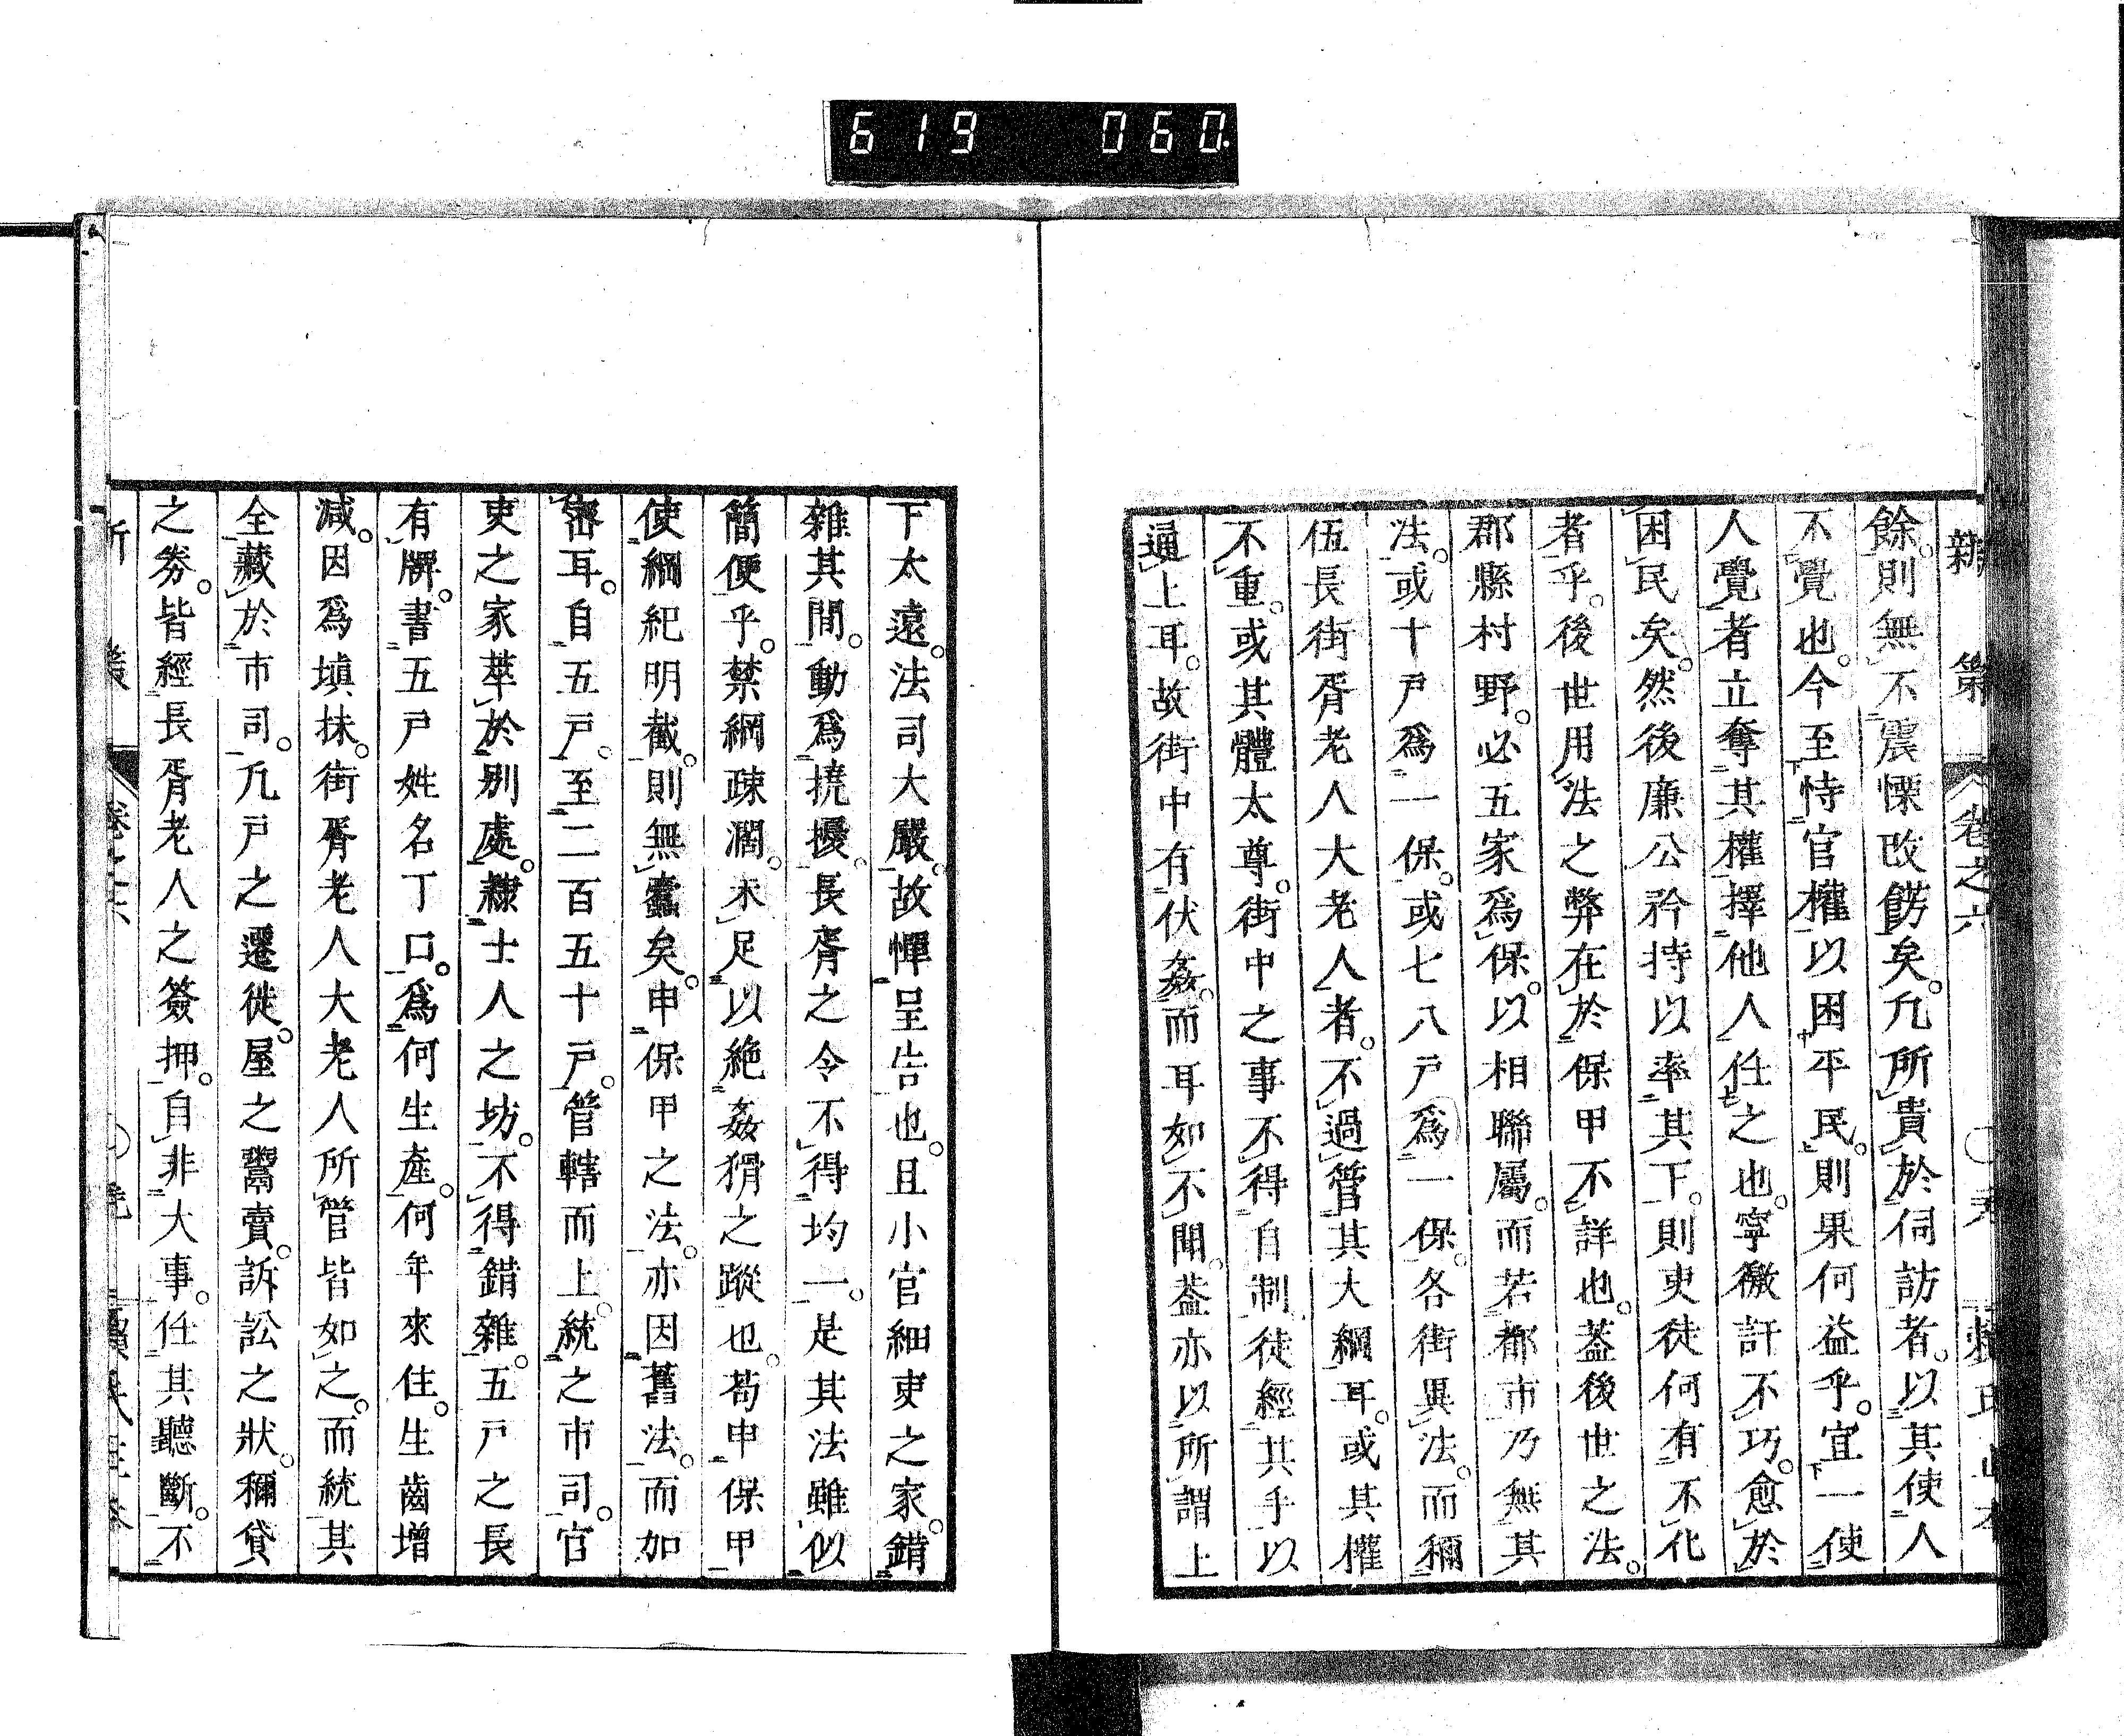 619 060.
新策 卷之六
餘。則無不震慄改餝矣。凢所貴於伺訪者。以其使人
不覺也。今至恃官權以困平民。則果何益乎。宜一使
人覺者立奪其權擇他人任之也。寧微訐不巧。愈於
困民矣。然後廉公矜持以率其下。則吏徒何有不化
者乎。後世用法之弊在於保甲不詳也。葢後世之法。
郡縣村野。必五家爲保。以相聯屬。而若都市乃無其
法。或十戸爲一保。或七八戸爲一保。各街異法。而稱
伍長街胥老人大老人者。不過管其大綱耳。或其權
不重。或其體太尊。街中之事不得自制。徒經其手以
通上耳。故街中有伏姦。而耳如不聞。葢亦以所謂上
下太遠。法司大嚴。故憚呈告也。且小官細吏之家。錯
雜其間。動爲撓擾。長胥之令不得均一。是其法雖似
簡便乎。禁綱疎濶。未足以絶姦猾之蹤也。苟申保甲
使綱紀明截。則無蠹矣。申保甲之法。亦因舊法。而加
審耳。自五戸。至二百五十戸。管轄而上。統之市司。官
吏之家萃於别處。隸士人之坊。不得錯雜。五戸之長
有牌。書五戸姓名丁口。爲何生產。何年來住。生齒增
減。因爲填抹。街胥老人大老人所管皆如之。而統其
全藏於市司。凢戸之遷徙。屋之鬻賣。訴訟之狀。稱貸
之券。皆經長胥老人之簽押。自非大事。任其聽斷。不